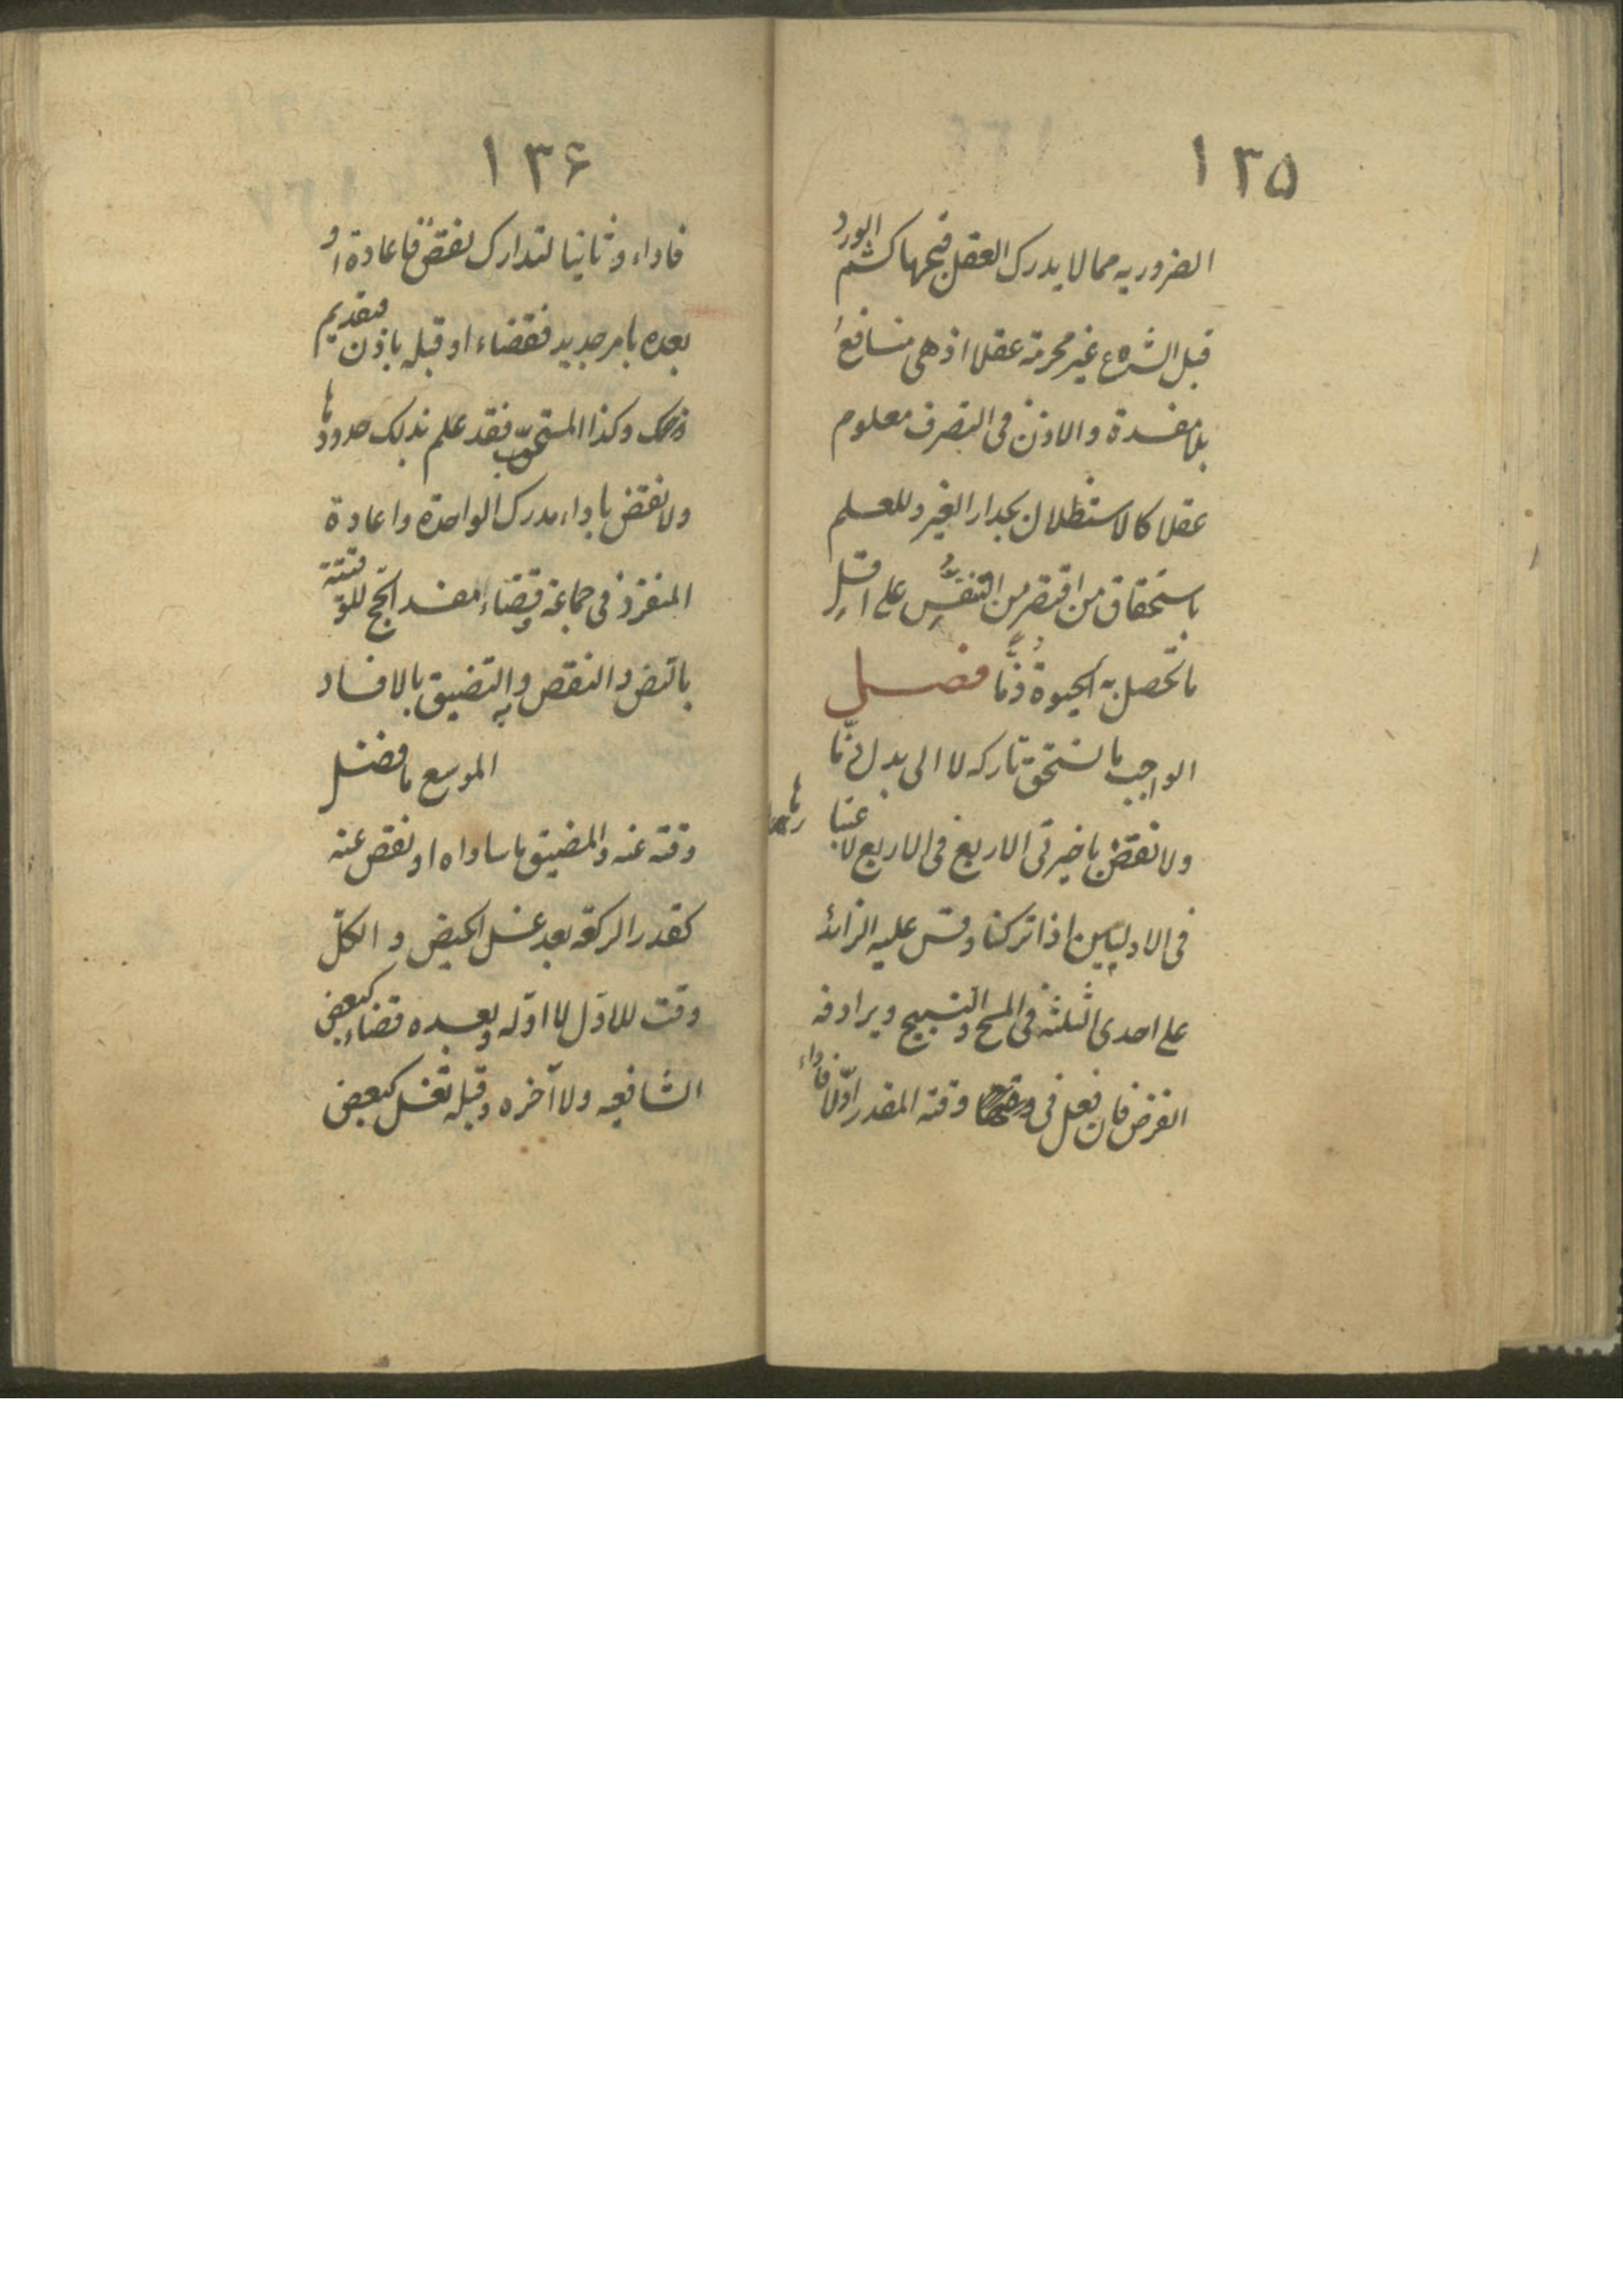 ١٣۵
الضروريه مما لا يدرك العقل قبحها كشم الورد
قبل الشرع غير محرمة عقلا اذ هى منافع
بلا مفسدة والاذن فى التصرف معلوم
عقلا كالاستظلال بجدار الغير وللعلم
باستحقاق من اقتصر من التنفس على اقل
ما تحصل به الحيوة ذما فصل
الواجب ما يستحق تاركه لا الى بدل ذما
ولا نقض باخيرتى الاربع فى الاربع لا
فى الاوليين اذا تركنا وقس عليه الزائد
على احدى الثلثة فى المسح والتسبيح ويرادفه
الفرض فان فعل فى وقته المقدر اولا فاداء
١٣۶
فاداء وثانيا لتدارك نقض فاعادة او
بعده بامر جديد فقضاء او قبله باذن فتقديم
وكذا المستحب فقد علم بذلك حدودها
ولا نقض باداء مدرك الواحدة واعادة
المنفرد فى جماعة وقضاء مفسد الحج
بالنص والنقص والتضيق بالافساد
الموسع ما فضل
وقته عنه والمضيق ما ساواه او نقص عنه
كقدر الركعة بعد غسل الحيض والكل
وقت للاول لا اوله وبعده قضاء كبعض
الشافعيه ولا آخره وقبله نفل كبعض